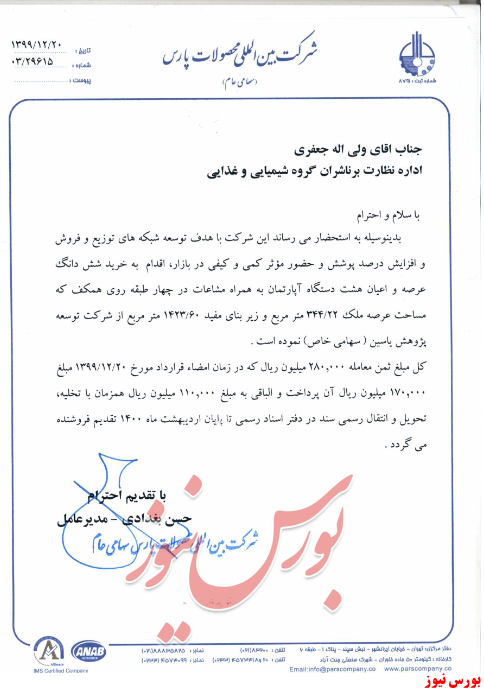 شرکت بین المللی محصولات پارس
(سهامی عام)
تاریخ : ۱۳۹۹/۱۲/۲۰
شماره : ۰۳/۲۹۶۱۵
پیوست :
شماره ثبت : ۸۷۹۱
جناب اقای ولی اله جعفری
اداره نظارت برناشران گروه شیمیایی و غذایی
با سلام و احترام
بدینوسیله به استحضار می رساند این شرکت با هدف توسعه شبکه های توزیع و فروش
و افزایش درصد پوشش و حضور مؤثر کمی و کیفی در بازار، اقدام به خرید شش دانگ
عرصه و اعیان هشت دستگاه آپارتمان به همراه مشاعات در چهار طبقه روی همکف که
مساحت عرصه ملک ۳۴۴/۲۲ متر مربع و زیر بنای مفید ۱۴۲۳/۶۰ متر مربع از شرکت توسعه
پژوهش یاسین ( سهامی خاص) نموده است .
کل مبلغ ثمن معامله ۲۸۰,۰۰۰ میلیون ریال که در زمان امضاء قرارداد مورخ ۱۳۹۹/۱۲/۲۰ مبلغ
۱۷۰,۰۰۰ میلیون ریال آن پرداخت و الباقی به مبلغ ۱۱۰,۰۰۰ میلیون ریال همزمان با تخلیه,
تحویل و انتقال رسمی سند در دفتر اسناد رسمی تا پایان اردیبهشت ماه ۱۴۰۰ تقدیم فروشنده
می گردد .
با تقدیم احترام
حسن بغدادی - مدیرعامل
شرکت بین المللی محصولات پارس سهامی عام
بورس نیوز
دفتر مرکزی: تهران - خیابان ایرانشهر - نبش سپند - پلاک ۱ - طبقه ۷
کارخانه : کیلومتر ۵۰ جاده خاوران - شهرک صنعتی
Email:info@parscompany.com www.parscompany.com
ANAB
IMS Certified Company
بورس نیوز